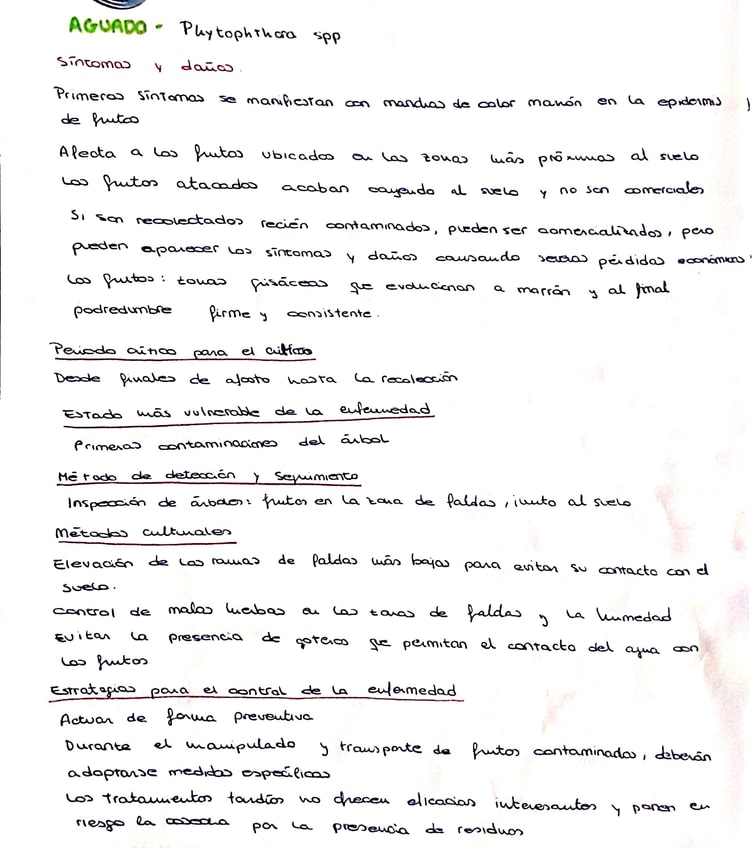 AGUADO - Phytophthora spp
Síntomas y daños.
Primeros síntomas se manifiestan con manchas de color marrón en la epidermis
de frutos
Afecta a los frutos ubicados en las zonas más próximas al suelo
Los frutos atacados acaban cayendo al suelo y no son comerciales
Si son recolectados recién contaminados, pueden ser comercializados, pero
pueden aparecer los síntomas y daños causando serias pérdidas económicas.
Los frutos: zonas grisáceas que evolucionan a marrón y al final
podredumbre firme y consistente.
Periodo crítico para el cultivo
Desde finales de agosto hasta la recolección
Estado más vulnerable de la enfermedad
Primeras contaminaciones del árbol
Método de detección y seguimiento
Inspección de árboles: frutos en la zona de faldas, junto al suelo
Métodos culturales
Elevación de las ramas de faldas más bajas para evitar su contacto con el
suelo.
Control de malas hierbas en las zonas de faldas y la humedad
Evitar la presencia de goteros que permitan el contacto del agua con
los frutos
Estrategias para el control de la enfermedad
Actuar de forma preventiva
Durante el manipulado y transporte de frutos contaminados, deberán
adoptarse medidas específicas
Los tratamientos tardíos no ofrecen eficacias interesantes y ponen en
riesgo la cosecha por la presencia de residuos